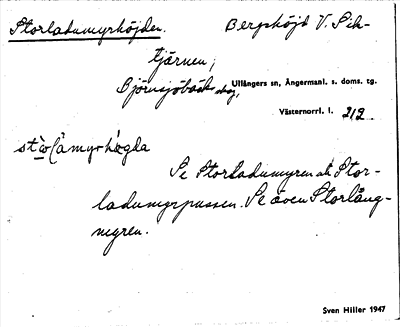 Storladumyrhöjden. Bergshöjd V. Sik-
tjärnen;
Björnsjöbäcks skog, Ullångers sn, Ångermanl. s. doms. tg.
Västernorrl. l. 212
Se Storladumyren ok Stor-
ladumyrpussen. Se även Storlång-
myren.
Sven Hiller 1947